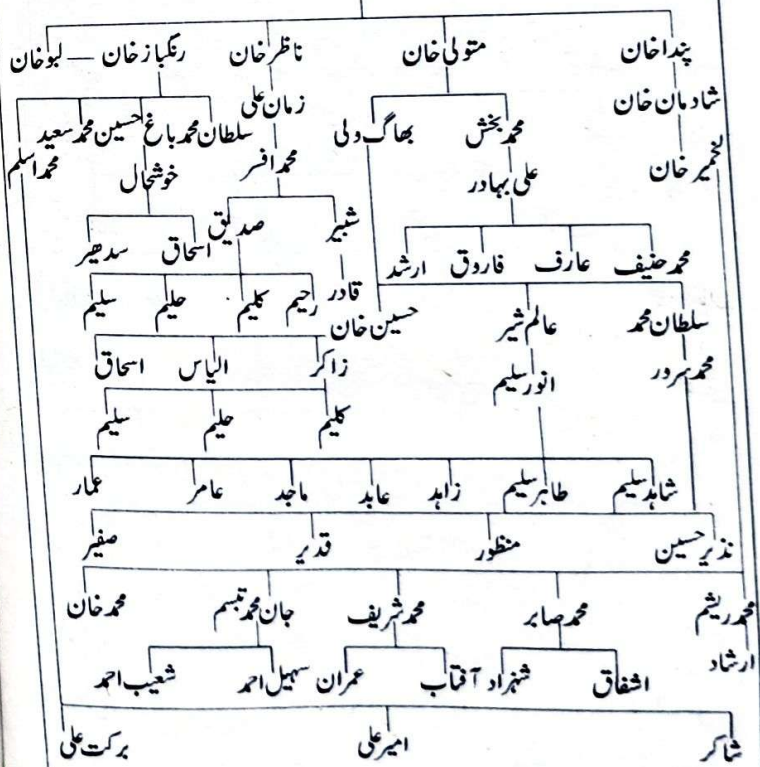 پنداخان متولی خان ناظر خان رنگباز خان لبوخان
شادمان خان زمان علی
محمد بخش بھاگ ولی سلطان محمد باغ حسین محمد سعید محمد اسلم
خمیر خان علی بہادر محمد افسر خوشحال
شبیر صدیق اسحاق سدھیر
محمد حنیف عارف فاروق ارشد
قادر رحیم کلیم حلیم سلیم
سلطان محمد عالم شیر حسین خان
محمد سرور انور سلیم زاکر الیاس اسحاق
کلیم حلیم سلیم
شاہد سلیم طاہر سلیم زاہد عابد ماجد عامر عمار
نذیر حسین منظور قدیر صفیر
محمد ریشم محمد صابر محمد شریف جان محمد تبسم محمد خان
ارشاد اشفاق شہزاد آفتاب عمران سہیل احمد شعیب احمد
شاکر امیر علی برکت علی